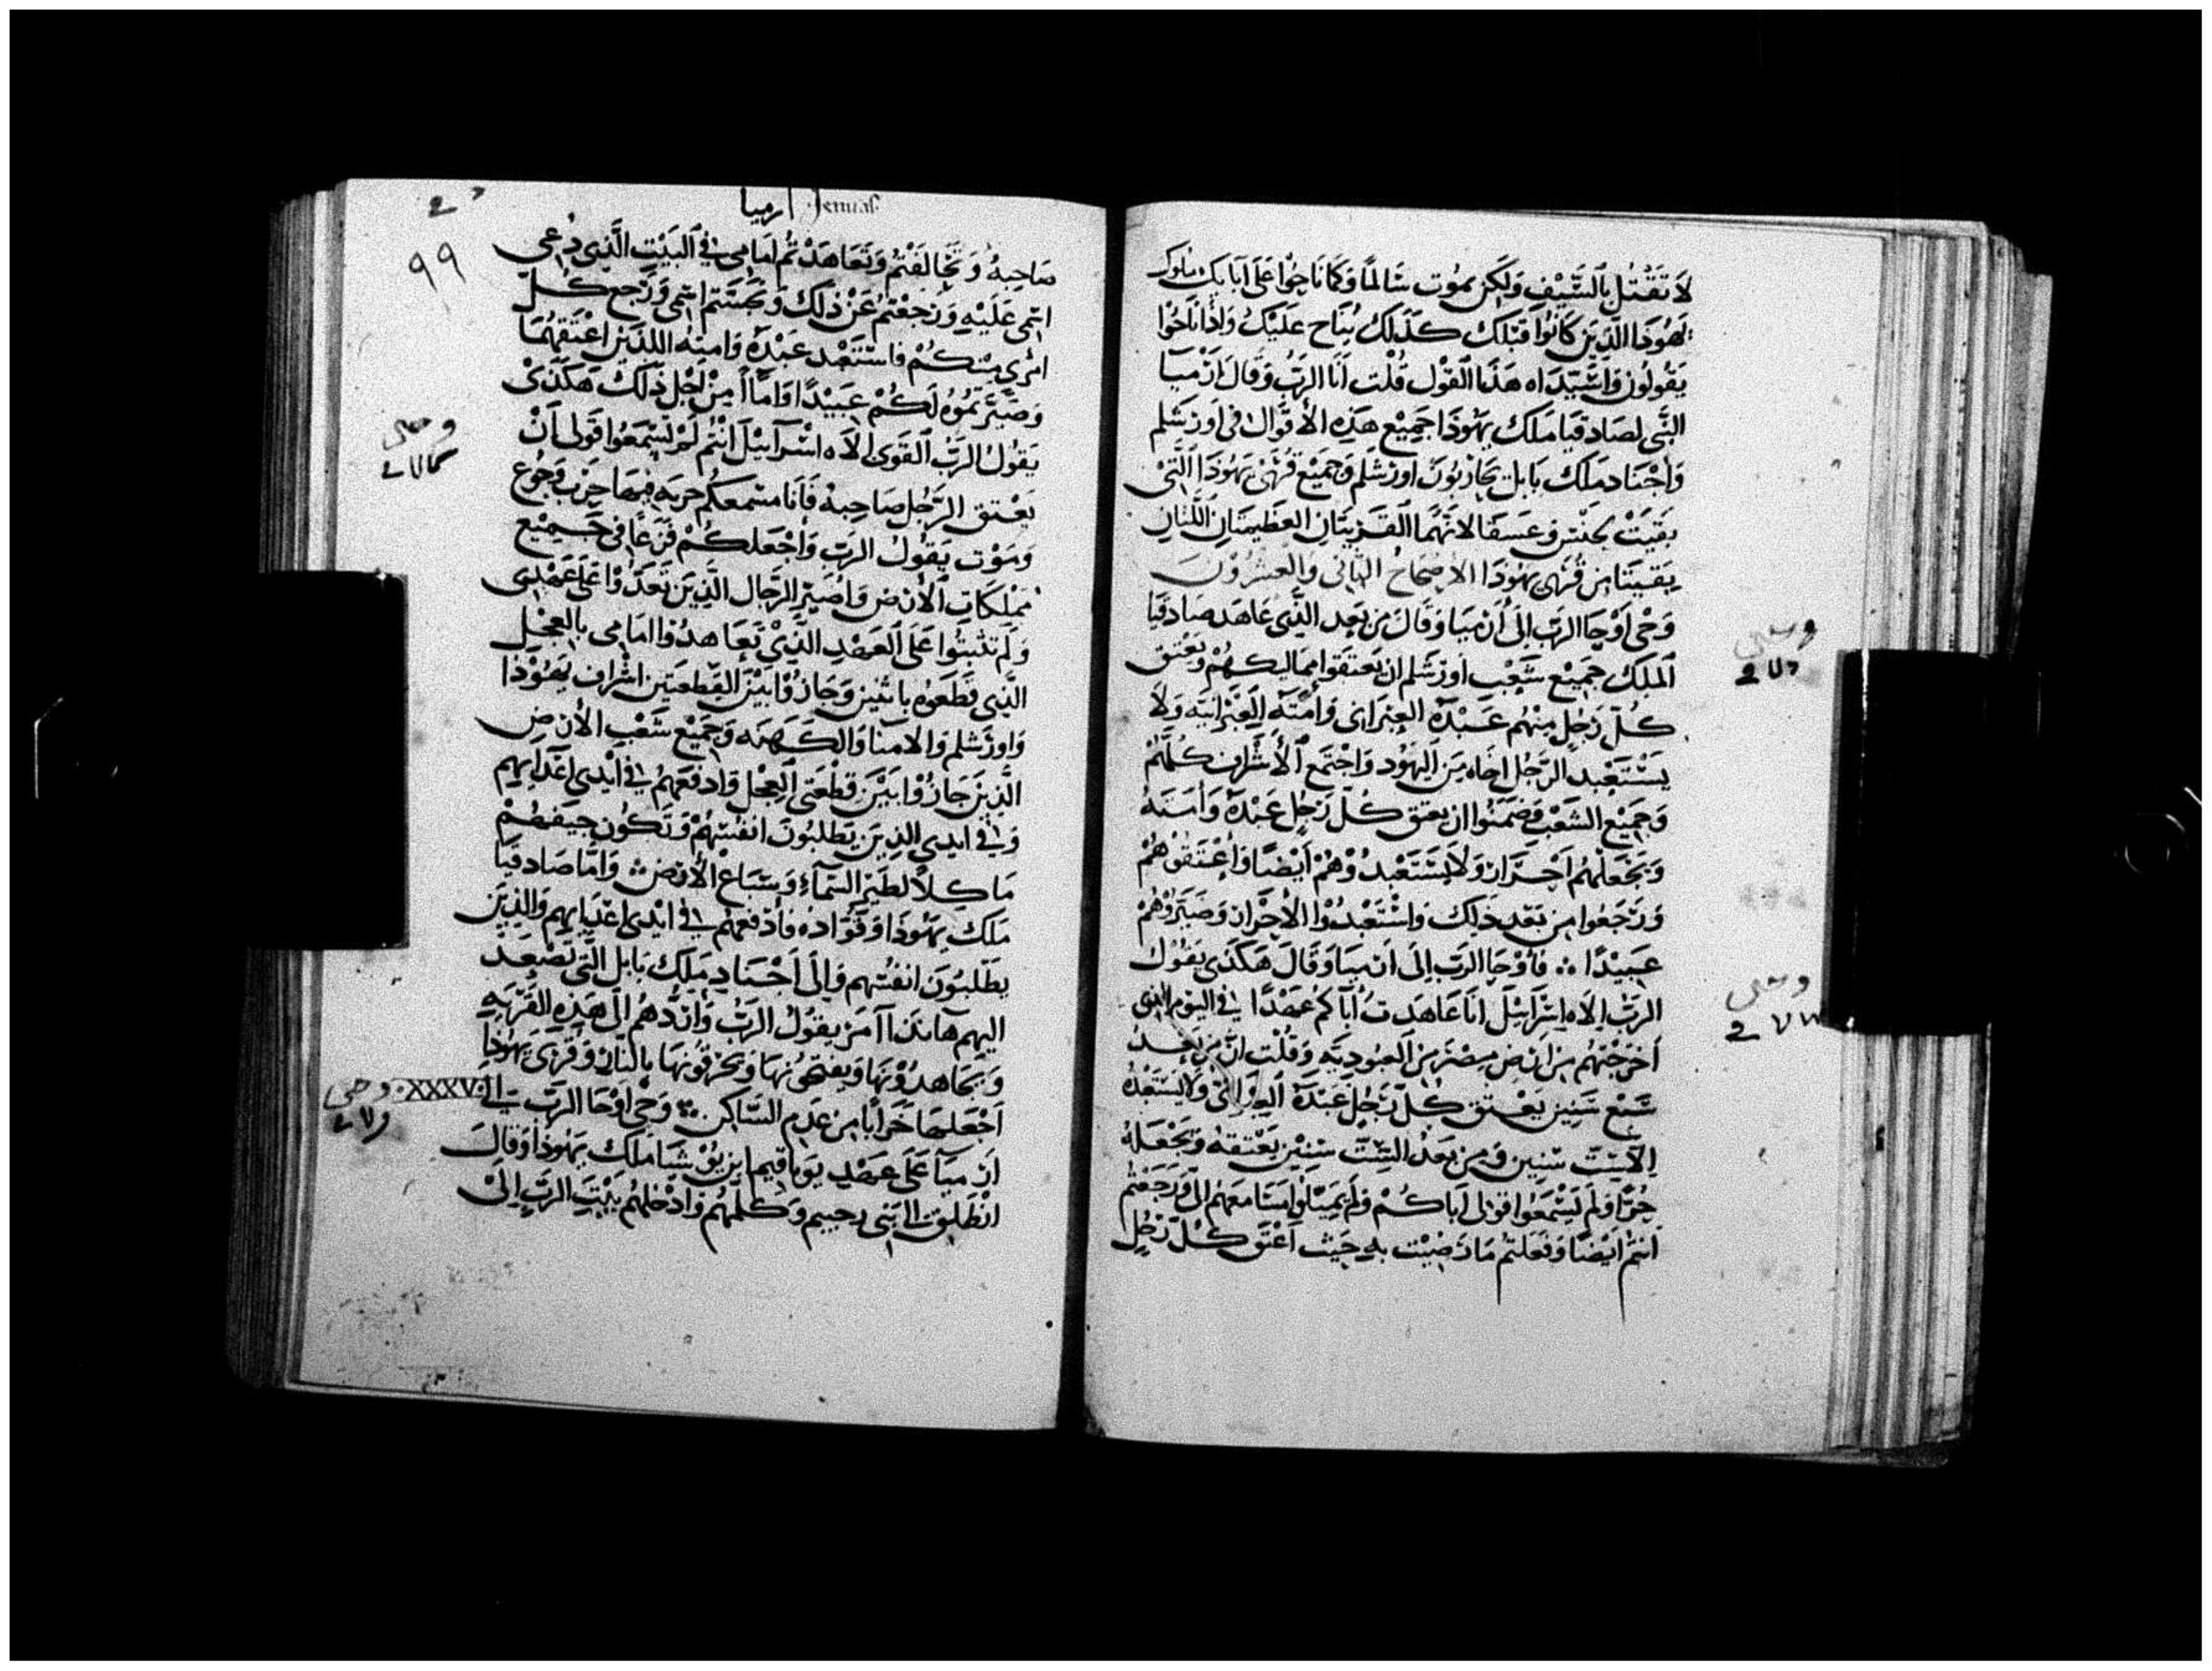 لَا تَقْتُل بِالسَّيْفِ وَلَكِن يمُوت سَالمًا وَكَمَا نَاحُوا عَلَى آبَايك ملوك
يَهُوذَا الَّذِينَ كَانُوا قَبْلَك كَذَلك يُنَاح عَلَيْكَ وَاذَا نَاحُوا
يَقُولُون وَاسَيّدَاه هَذَا القَوْل قُلْت أَنَا الرَّبّ وَقَالَ ارْميَا
النَّبى لصَادقيَا مَلك يهُوذَا جَمِيْع هَذِه الأقوَال فى اورشَلم
وَأجْنَاد مَلك بَابل يحَاربُونَ اورشَلم وَجَميْع قُرَى يهُوذَا الَّتى
بَقيَتْ لخيش وعسَقَا لانَّهُمَا القَريتَان العَظيمتَان اللَّتَان
بَقيتَا من قُرَى يهُوذَا الاصْحَاح الثانى والعشْرُونَ
وَحْى أوْحَا الرَّبّ الَى أرْميَا وَقَالَ من بَعد الَّذى عَاهَد صَادقيَا
المَلك جَميْع شَعْب اورشَلم ان يَعتقَوا ممَاليكهُمْ وَيَعْتق
كُلّ رَجُل منْهُم عَبْدَهُ العبرَانى وَأمَتَه العبْرَانيَه وَلَا
يسْتَعْبد الرَّجُل اخَاه منَ اليَهُود وَاجْتَمع الأشْرَاف كُلّهُمْ
وَجَميْع الشَعْب وَضَمنُوا ان يعتق كُلّ رَجُل عَبْدَهُ وَأمَتَهُ
وَيجْعَلهُم احْرَار وَلَا يسْتَعْبدُوهُمْ أيْضًا وَاعْتَقُوهُمْ
وَرَجَعُوا من بَعْد ذَلك وَاسْتَعْبدُوْا الأحْرَار وَصَيّرُوْهُمْ
عَبيْدًا ۞ فَأوْحَا الرَّبّ الَى ارميَا وَقَالَ هَكَذَى يقُوْل
الرَّبّ الَاه اسْرَايئل انَا عَاهَدت أبَآكم عَهْدًا فى اليَوْم الذى
أخرَجْتهُم من أرض مصْرَ من العبُوديَّه وَقُلْت انَّ من بَعْد
سَبْع سنين يعْتق كُلّ رَجُل عَبْدَهُ العبرَانى وَلَا يستَعبْدهُ
الَّا ستّ سنين وَمن بَعْد السّتّ سنيْن يَعْتقهُ وَيَجْعَلهُ
حُرًّا وَلَم يَسْمَعُوا قولى آبَاكُمْ وَلَم يميْلوا مسَامعَهُم الىّ وَرَجَعْتُم
انتُم ايْضًا وَفَعَلتُم مَا رَضيْت به حَيث أعْتَق كُلّ رَجُل
وحى
وحى
ارميا Jermiaſ.
٩٩
صَاحبهُ وَتخَالَفْتُم وَتَعَاهَدْتُم أمَامى فى البَيْت الَّذى دُعى
اسْمى عَلَيْه وَرَجعْتُم عَنْ ذلك وَنجّستُم اسمى وَرَجع كُلّ
امْرئ منْكُمْ فاستَعْبد عَبْدَهُ وَامته اللذَيْن اعْتَقهُمَا
وَصَيّرتمُوْه لَكُمْ عَبيْدًا وَامَآأ منْ أجْل ذَلك هَكَذَى
يَقُولُ الرَّبّ القَوى الَاه اسْرَآيئلَ انْتُم لَمْ تَسْمَعُوا قَولى أنْ
يَعْتق الرَّجُل صَاحبهُ فَأنَا مسْمعكُم حريَه فيهَا حَرْب وَجُوع
وَمَوْت يَقُولُ الرَّبّ وَأجْعَلكُمْ فَزعًا فى جَميْع
ممْلكَات الأرْض وَاصَيّر الرّجَال الَّذيَن تَعَدَّوْا عَلَى عَهْدى
وَلَم تثْبتُوا عَلَى العَهْد الَّذيْ تعَاهدُوا امَامى بالعجْل
الَّذى قَطَعُوه باثنين وَجَازُوْا بَيْنَ القطعَتين اشْرَاف يهُوْذَا
وَاورشَلم وَالامنَا وَالكَهَنه وَجَميْع شَعْب الأرْض
الَّذينَ جَازُوْا بَيْنَ قطْعَتى العجل وَادفعَهُمْ فى ايْدى اعْدَايهم
وَفى ايدى الذينَ يَطلبُونَ انفُسَهُمْ وَتَكُون جيَفهُمْ
مَاكلاً لطَيْر السَّمَآء وَسبَاع الأرْض ۞ وَامَّا صَادقيَا
مَلك يَهُوْذَا وَقُوّاده فَأدْفعَهُمْ فى ايْدى اعْدَايهم وَالذينَ
يطْلبُونَ انفُسَهم وَالَى أجْنَاد مَلك بَابل الَّتى تَصْعَد
اليهم هَانَذَا آمَر يقُولُ الرَّبّ وَأرُدّهُم الَى هَذه القَريَه
وَيجَاهدُوْنَهَا وَيفتَحُونهَا وَيحْرقُونهَا بالنَّار وَقُرَى يهُوْذَا
أجْعَلهَا خَرَابًا من عَدَم السَّاكن ۞ وَحْى أوْحَا الرَّبّ الى
ارْميَآ عَلَى عَهْد يوَيَاقيم ابن يُوْشيَا مَلك يهُوذَا وَقَالَ
انْطَلق الى بَنى رحبيم وَكَلّمهُم وَادْخلهُم بَيْتَ الرَّبّ الَى
وحى
XXXV.
وحى